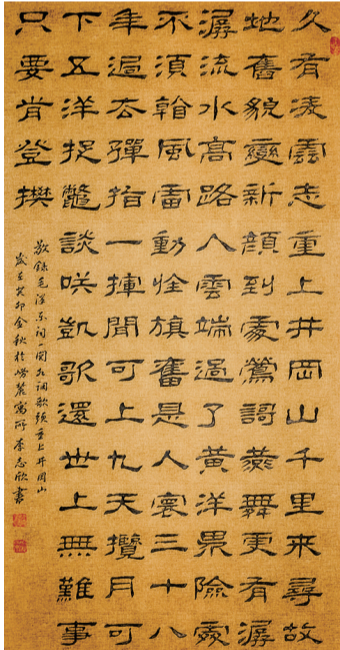 久有凌雲志重上井岡山千里來尋故
地舊貌變新顏到處鶯謌燕舞更有潺
潺流水高路入雲端過了黃洋界險處
不須看風雷動旌旗奮是人寰三十八
年過去彈指一揮間可上九天攬月可
下五洋捉鱉談咲凱歌還世上無難事
只要肯登攀
敬録毛澤東詞一闋水調歌頭重上井岡山
歲在癸卯金秋於嶗麓寓所李志欣書